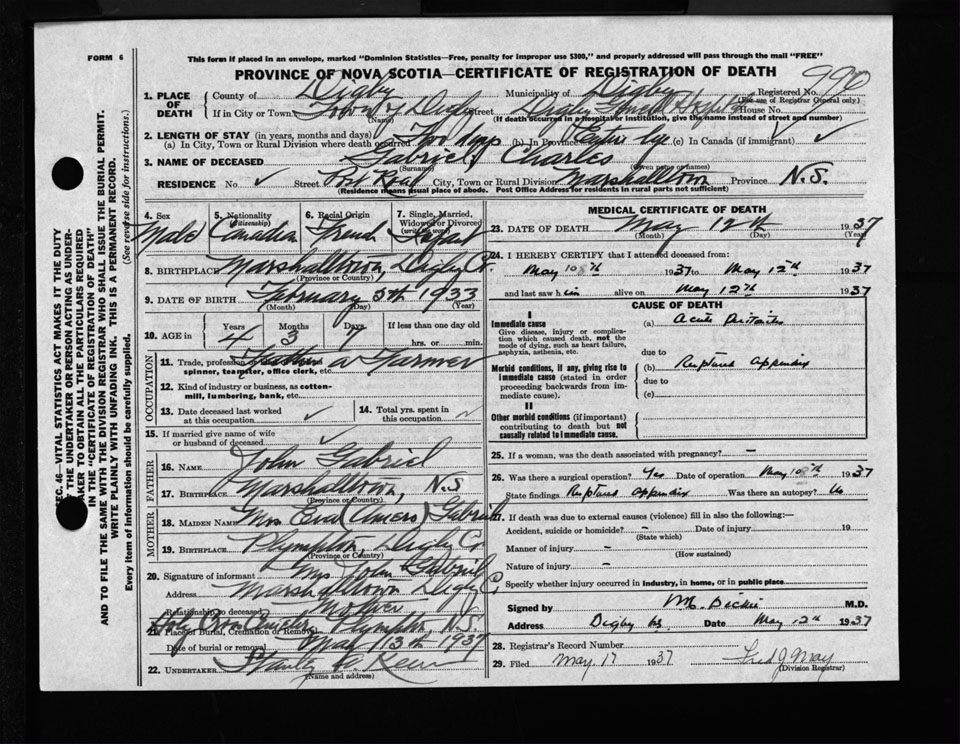 FORM 6
This form if placed in an envelope, marked "Dominion Statistics—Free, penalty for improper use $300," and properly addressed will pass through the mail "FREE"
PROVINCE OF NOVA SCOTIA—CERTIFICATE OF REGISTRATION OF DEATH
990
1. PLACE OF DEATH
County of Digby Municipality of Digby Registered No.
(For use of Registrar General only)
If in City or Town Town of Digby Street Digby General Hospital House No.
(Name) (If death occurred in a hospital or institution, give the name instead of street and number)
2. LENGTH OF STAY (in years, months and days)
(a) In City, Town or Rural Division where death occurred Two days (b) In Province Entire life (c) In Canada (if immigrant) ✓
3. NAME OF DECEASED Gabriel, Charles
(Surname) (Given name or names)
RESIDENCE No. ✓ Street Post Road City, Town or Rural Division Marshalltown Province N.S.
(Residence means usual place of abode. Post Office Address for residents in rural parts not sufficient)
4. Sex Male
5. Nationality (Citizenship) Canadian
6. Racial Origin French
7. Single, Married, Widowed or Divorced (write the word) Infant
8. BIRTHPLACE Marshalltown, Digby Co.
(Province or Country)
9. DATE OF BIRTH February 5th 1933
(Month) (Day) (Year)
10. AGE in Years 4 Months 3 Days 7 If less than one day old
hrs. or min.
OCCUPATION
11. Trade, profession or a Farmer
spinner, teamster, office clerk, etc.
12. Kind of industry or business, as cotton-mill, lumbering, bank, etc.
13. Date deceased last worked at this occupation ✓
14. Total yrs. spent in this occupation
15. If married give name of wife or husband of deceased ✓
FATHER
16. NAME John Gabriel
17. BIRTHPLACE Marshalltown, N.S
(Province or Country)
MOTHER
18. MAIDEN NAME Mrs Eva (Amero) Gabriel
19. BIRTHPLACE Plympton, Digby Co
(Province or Country)
20. Signature of informant Mrs John Gabriel
Address Marshalltown Digby Co
Relationship to deceased Mother
Holy Cross Cemetery Plympton N.S.
21. Place of Burial, Cremation or Removal
Date of burial or removal May 13th 1937
22. UNDERTAKER
(Name and address)
MEDICAL CERTIFICATE OF DEATH
23. DATE OF DEATH May 12th 1937
(Month) (Day) (Year)
24. I HEREBY CERTIFY that I attended deceased from:
May 10th 1937 to May 12th 1937
and last saw him alive on May 12th 1937
CAUSE OF DEATH
I
Immediate cause
Give disease, injury or complication which caused death, not the mode of dying, such as heart failure, asphyxia, asthenia, etc.
(a) Acute Peritonitis
due to
Morbid conditions, if any, giving rise to immediate cause (stated in order proceeding backwards from immediate cause).
(b) Ruptured appendix
due to
(c)
II
Other morbid conditions (if important) contributing to death but not causally related to immediate cause.
25. If a woman, was the death associated with pregnancy? –
26. Was there a surgical operation? Yes Date of operation May 10th 1937
State findings Ruptured appendix Was there an autopsy? No
27. If death was due to external causes (violence) fill in also the following:—
Accident, suicide or homicide? – Date of injury 19
(State which)
Manner of injury –
(How sustained)
Nature of injury –
Specify whether injury occurred in industry, in home, or in public place
Signed by M.D.
Address Digby NS Date May 12th 1937
28. Registrar's Record Number
29. Filed May 17 1937 Fred J May
(Division Registrar)
SEC. 46—VITAL STATISTICS ACT MAKES IT THE DUTY
OF THE UNDERTAKER OR PERSON ACTING AS UNDER-
TAKER TO OBTAIN ALL THE PARTICULARS REQUIRED
IN THE "CERTIFICATE OF REGISTRATION OF DEATH"
AND TO FILE THE SAME WITH THE DIVISION REGISTRAR WHO SHALL ISSUE THE BURIAL PERMIT.
WRITE PLAINLY WITH UNFADING INK. THIS IS A PERMANENT RECORD.
Every item of information should be carefully supplied. (See reverse side for instructions.)